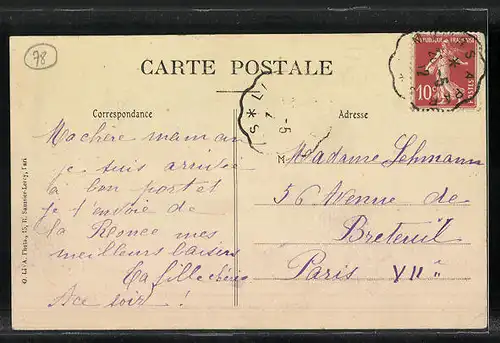 78
CARTE POSTALE
Correspondance
Adresse
RÉPUBLIQUE FRANÇAISE
10c
POSTES
Ma chère maman
je suis arrivée
à bon port et
je t'envoie de
la Ronce mes
meilleurs baisers
Ta fille chérie
A ce soir !
M
Madame Lehmann
56 Avenue de
Breteuil
Paris VIIe